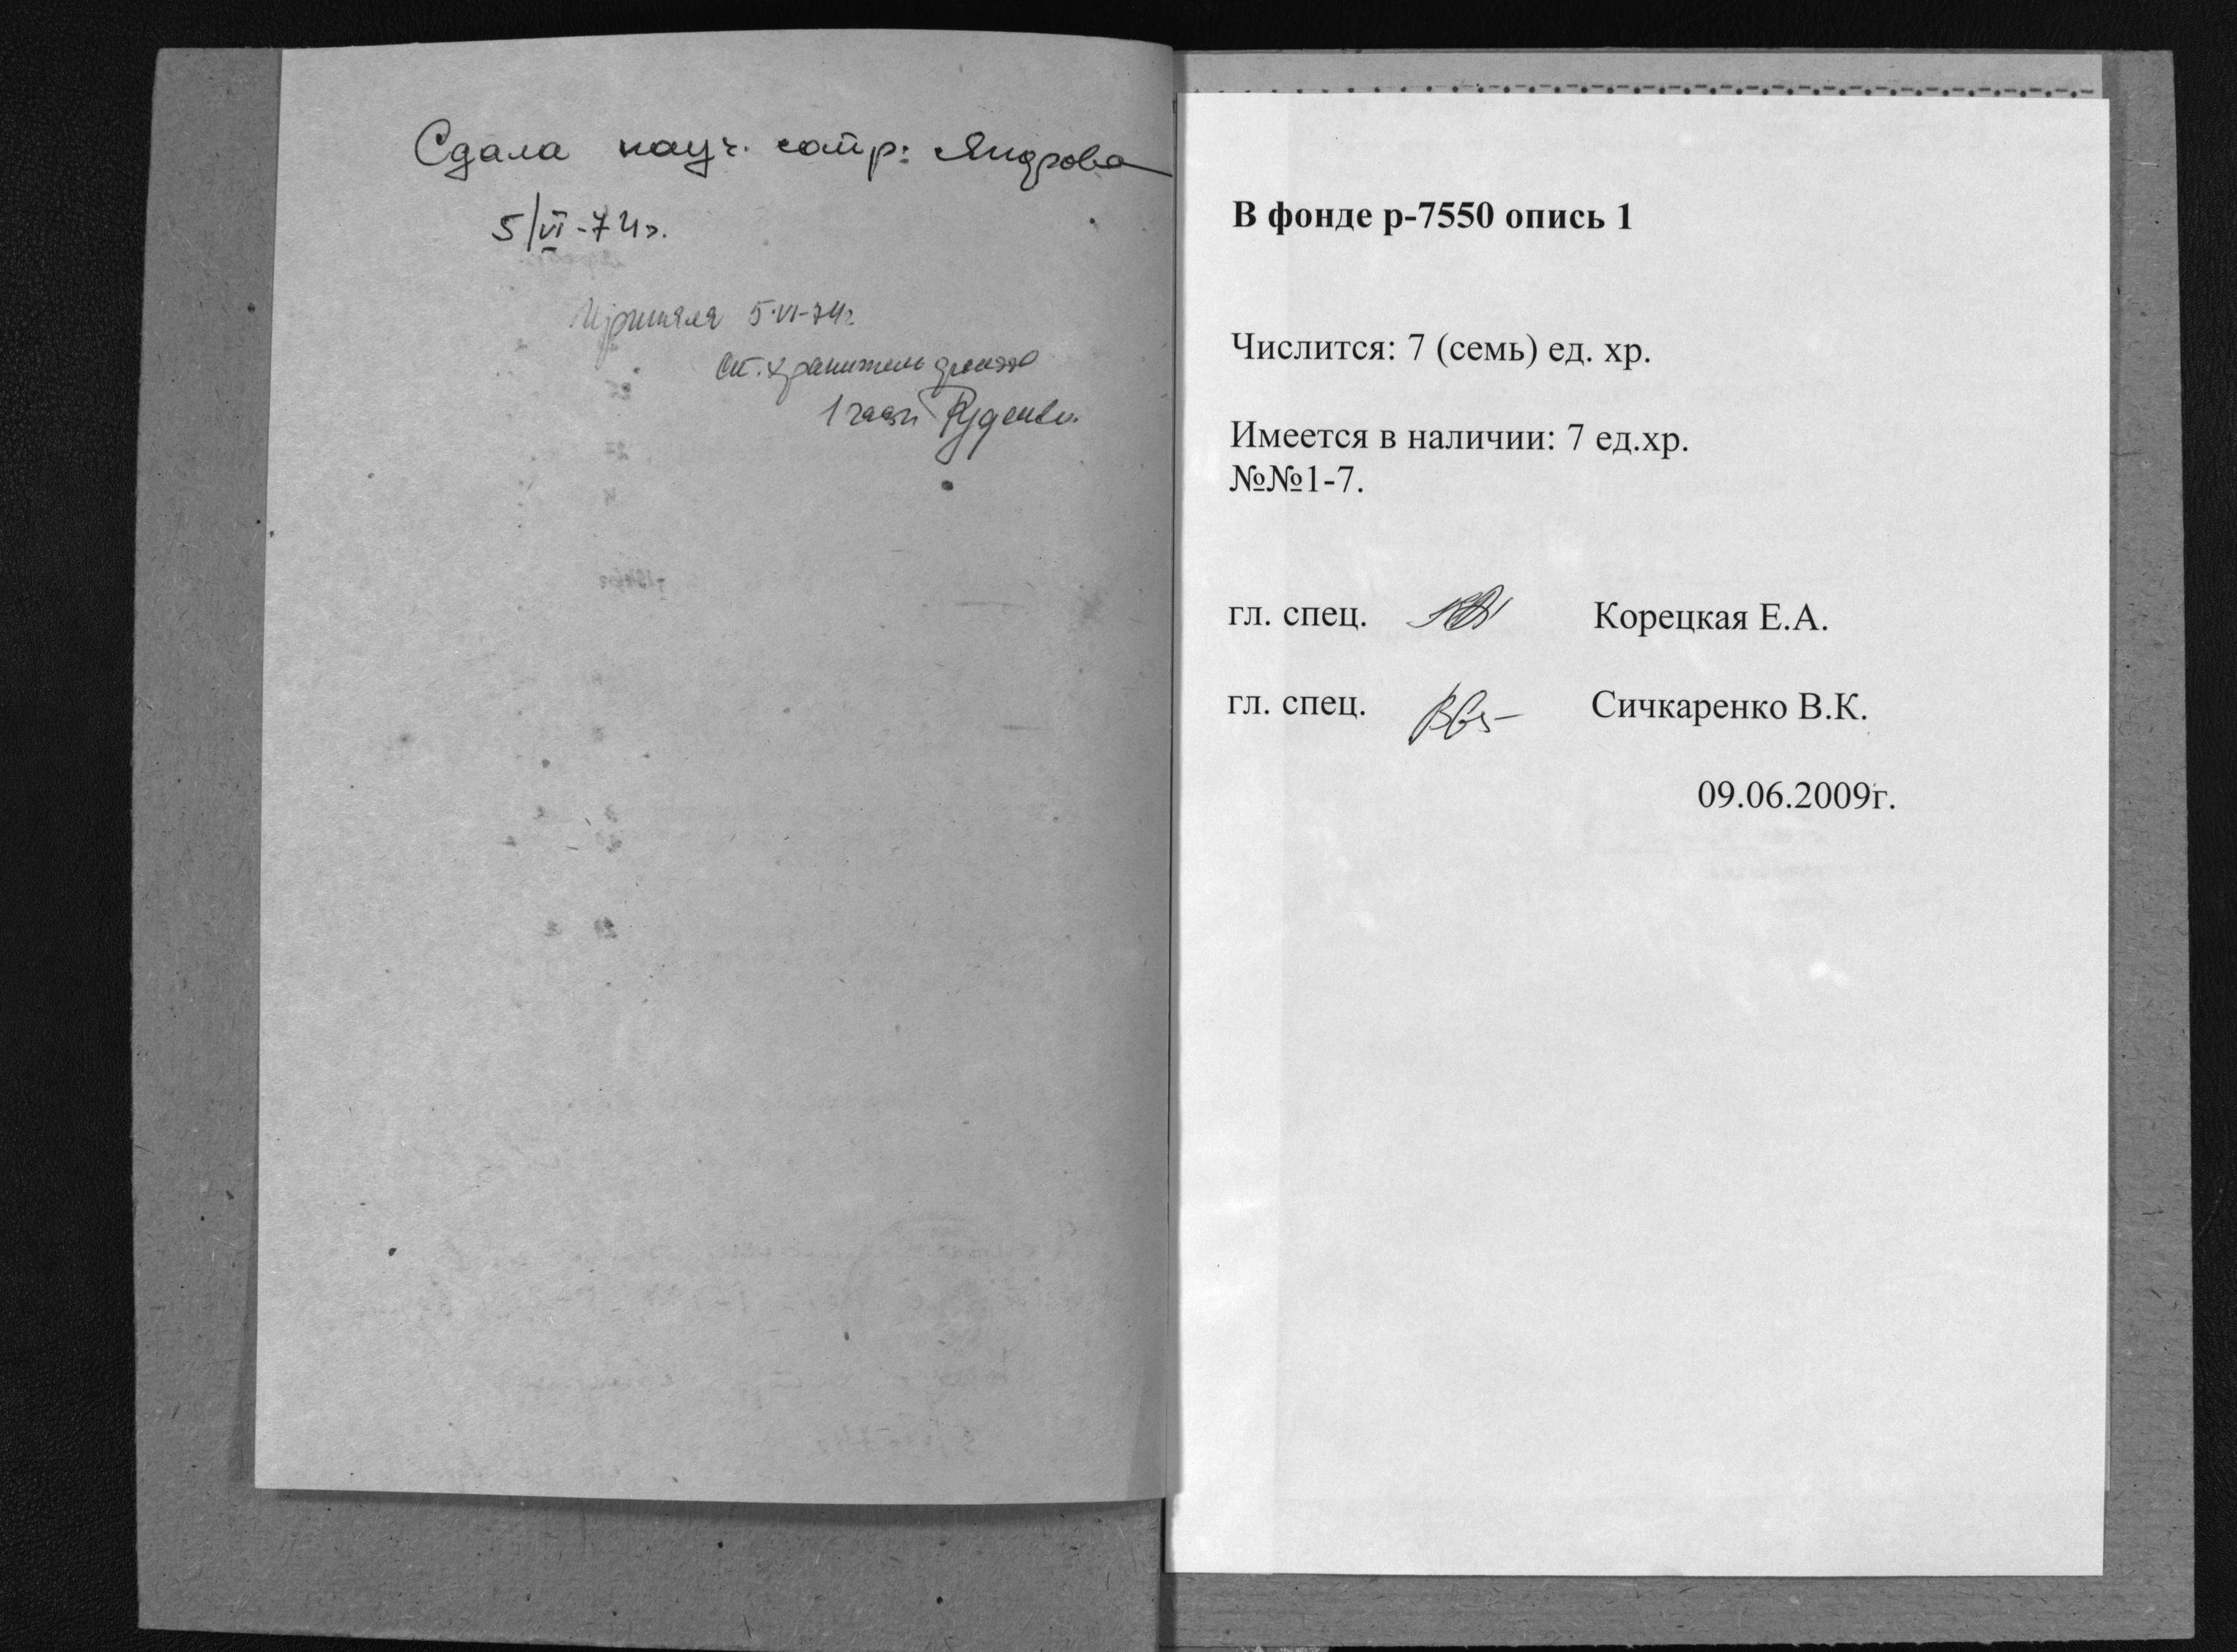 Сдала науч. сотр:
5/VI-74г.
Приняла 5·VI-74г
Ст. хранитель фондов
1 части Руденко
В фонде р-7550 опись 1
Числится: 7 (семь) ед. хр.
Имеется в наличии: 7 ед.хр.
№№1-7.
гл. спец. Корецкая Е.А.
гл. спец. Сичкаренко В.К.
09.06.2009г.